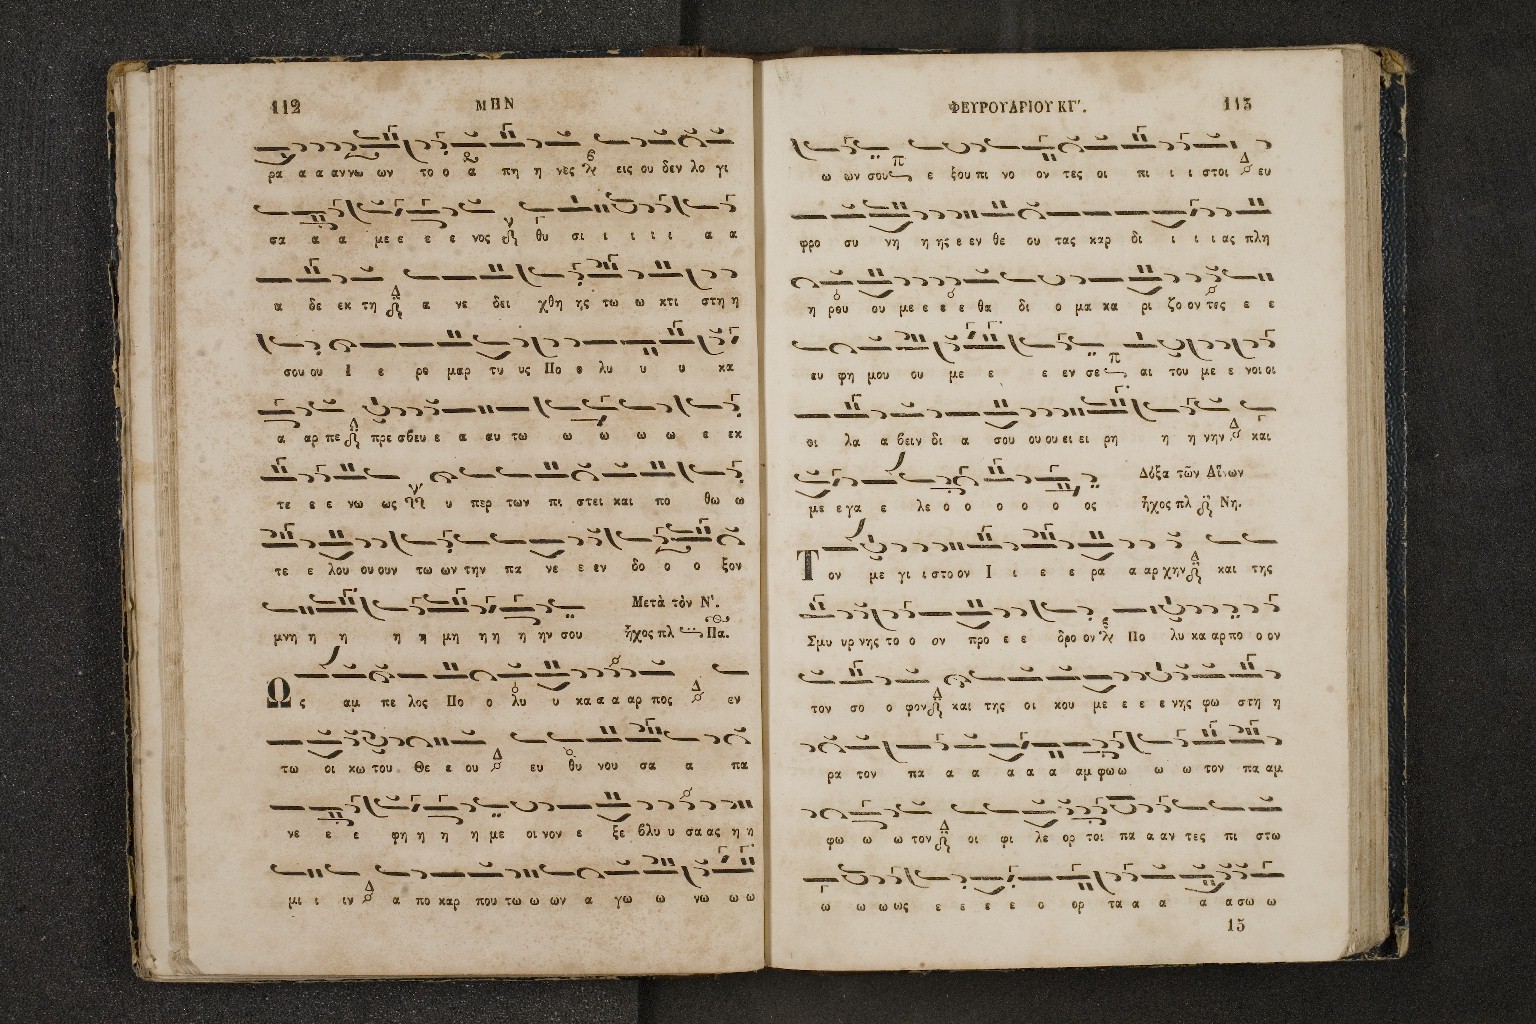 112 ΜΗΝ
ρα α α αν νω ων το ο α πη η νες εις ου δεν λο γι
σα α α με ε ε ε νος θυ σι ι ι ι ι α α
α δε εκ τη α νε δει χθη ης τω ω κτι στη η
σου ου Ι ε ρο μαρ τυ υς Πο ο λυ υ υ κα
α αρ πε πρε σβευ ε α αυ τω ω ω ω ω ε εκ
τε ε ε νω ως υ περ των πι στει και πο θω ω
τε ε λου ου ουν τω ων την πα νε ε εν δο ο ο ξον
μνη η η η η μη η η η ην σου Μετὰ τὸν Ν΄.
ἦχος πλ Πα.
Ως αμ πε λος Πο ο λυ υ κα α α αρ πος εν
τω οι κω του Θε ε ου ευ θυ νου σα α πα
νε ε ε φη η η η με οι νον ε ξε βλυ υ σα ας η η
μι ι ιν α πο καρ που τω ω ων α γω ω νω ω ω
ΦΕΥΡΟΥΑΡΙΟΥ ΚΓ΄. 113
ω ων σου ε ξου πι νο ον τες οι πι ι ι στοι ευ
φρο συ νη η ης ε εν θε ου τας καρ δι ι ι ι ας πλη
η ρου ου με ε ε ε θα δι ο μα κα ρι ζο ον τες ε ε
ευ φη μου ου με ε ε εν σε αι του με ε νοι οι
οι λα α βειν δι α σου ου ου ει ει ρη η η νην και
με ε γα ε λε ο ο ο ο ο ο ος Δόξα τῶν Αἴνων
ἦχος πλ Νη.
Τον με γι ι στο ον Ι ι ε ε ρα α αρ χην και της
Σμυ υρ νης το ο ον προ ε ε δρο ον Πο λυ κα αρ πο ο ον
τον σο ο φον και της οι κου με ε ε ε νης φω στη η
ρα τον πα α α α α α αμ φω ω ω ω τον πα αμ
φω ω ω τον οι φι λε ορ τοι πα α αν τες πι στω
ω ω ω ως ε ε ε ε ο ορ τα α α α α σω ω
15